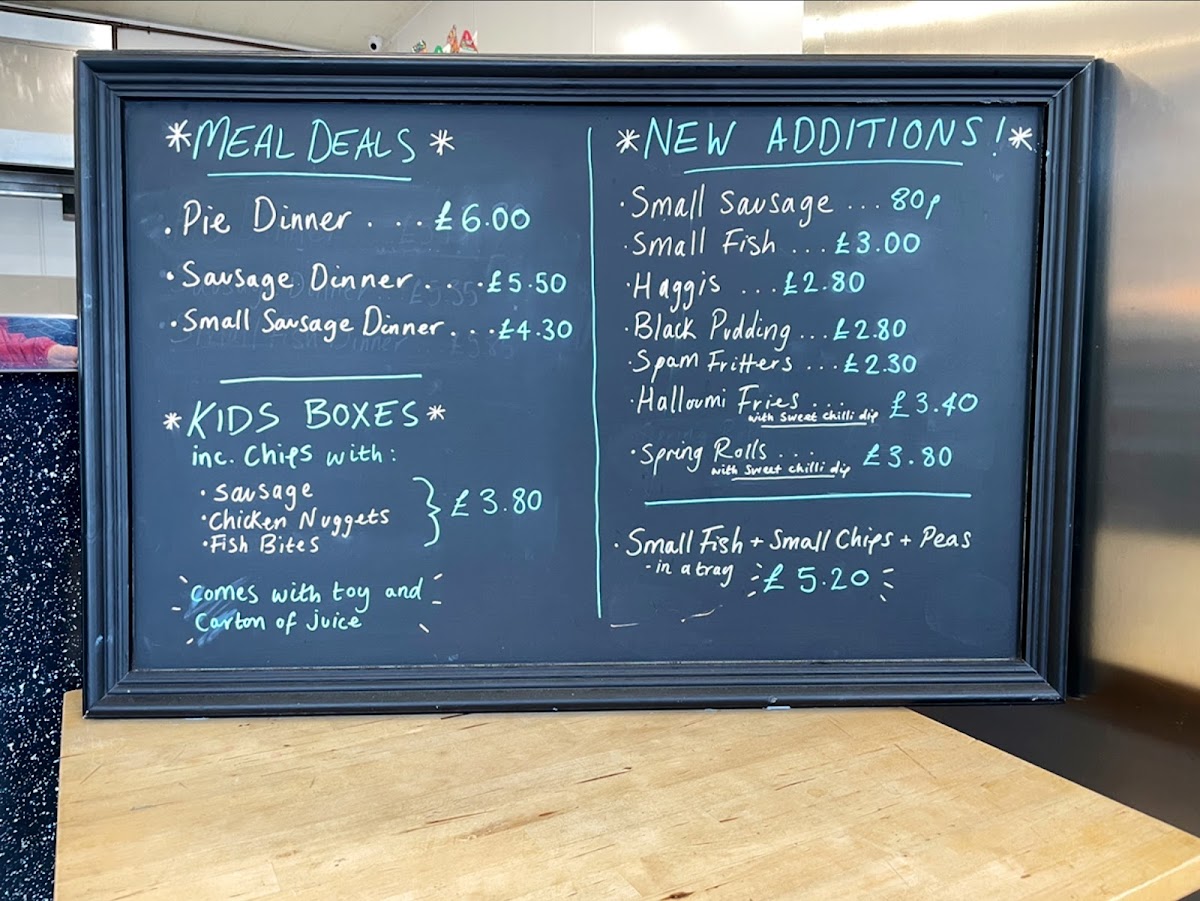 *MEAL DEALS*
. Pie Dinner .... £6.00
· Sausage Dinner . . .. £5.50
· Small Sausage Dinner... £4.30
*KIDS BOXES*
inc. Chips with:
· Sausage
· Chicken Nuggets } £3.80
· Fish Bites
comes with toy and
Carton of juice
*NEW ADDITIONS!*
· Small Sausage ... 80p
· Small Fish ... £3.00
· Haggis ... £2.80
· Black Pudding ... £2.80
· Spam Fritters ... £2.30
· Halloumi Fries ... £3.40
with sweet chilli dip
· Spring Rolls ... £3.80
with sweet chilli dip
· Small Fish + Small Chips + Peas
- in a tray £5.20